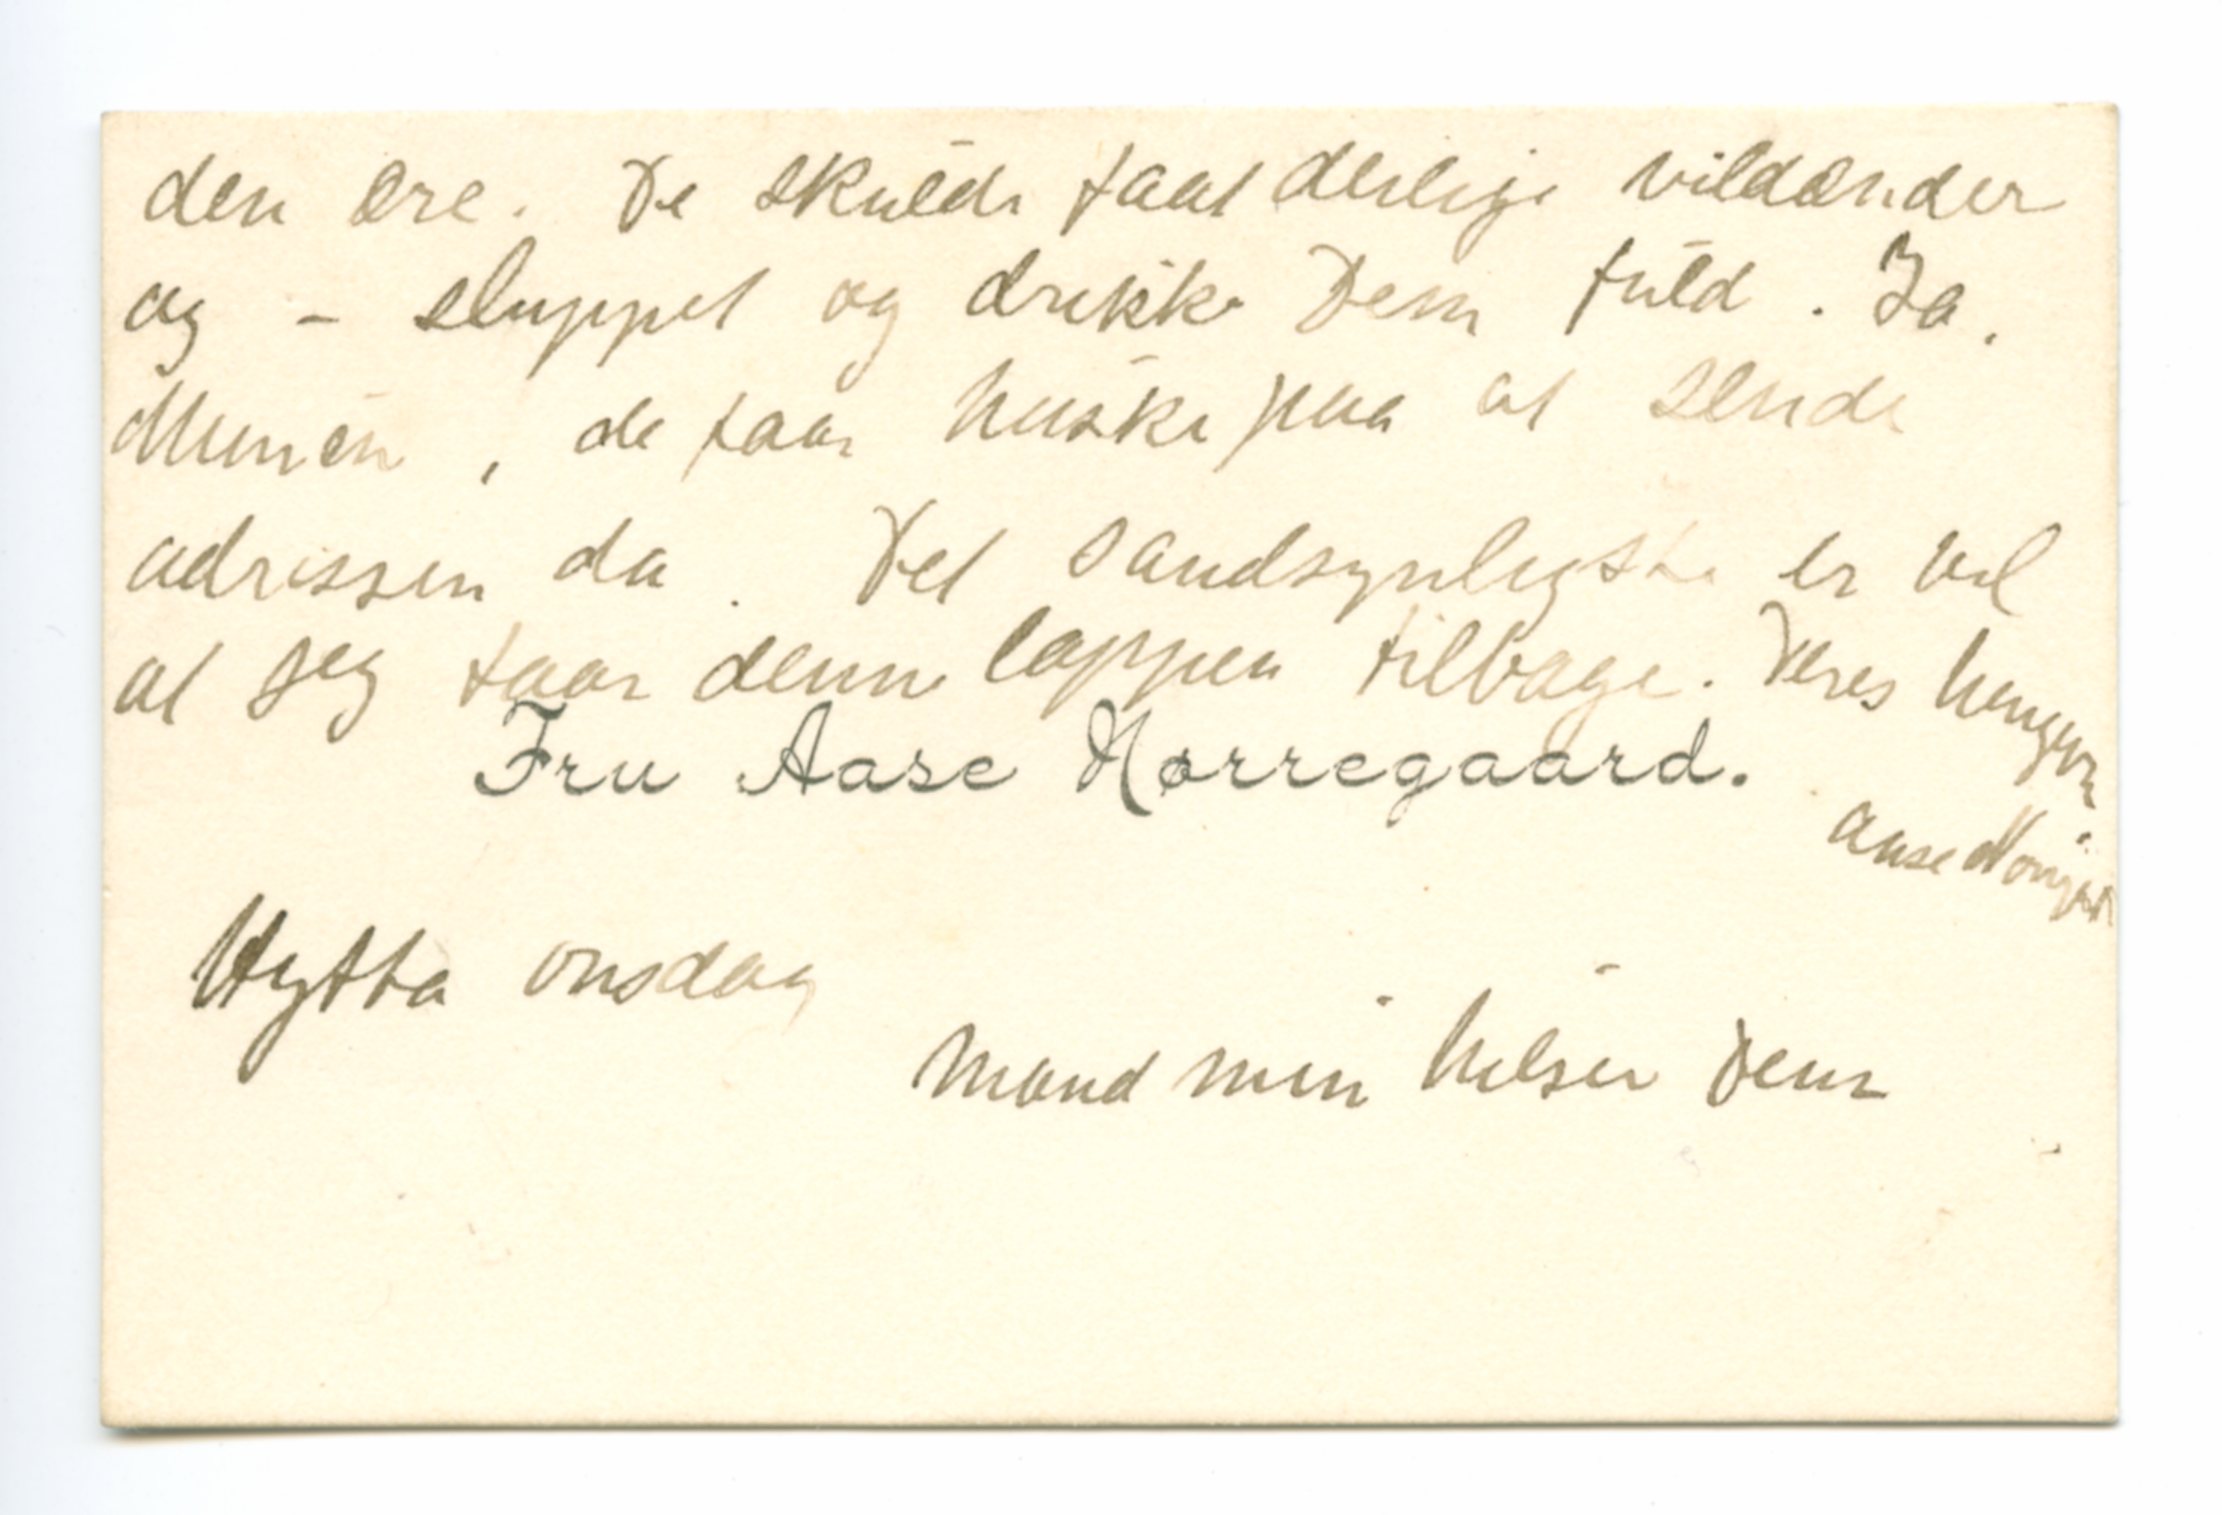 den ære. De skulde faat deilige vildænder
og – sluppet og drikke Dem fuld. Ja.
Munch, de faar huske paa at sende
adressen da. Det sandsynligste er vel
at jeg faar denne lappen tilbage. Deres hengivn
Fru Aase Nørregaard.
Aase Nørrega
Hytta onsdag
Mand min hilser Dem